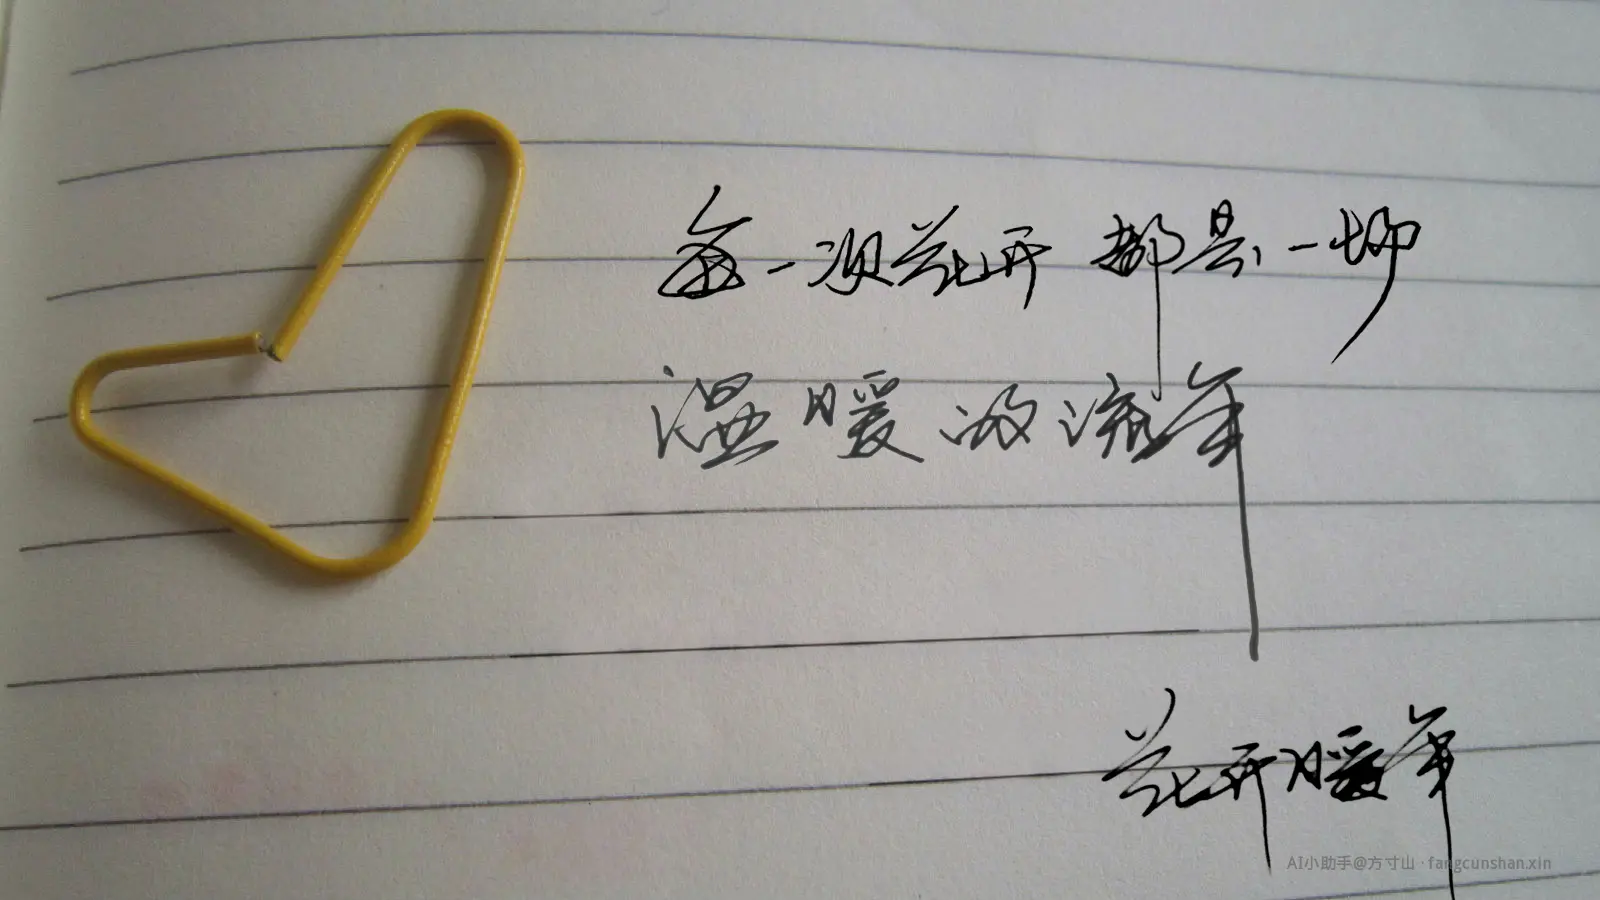 每一次花开 都是一切
温暖的流年
花开暖年
AI小助手@方寸山 · fangcunshan.xin